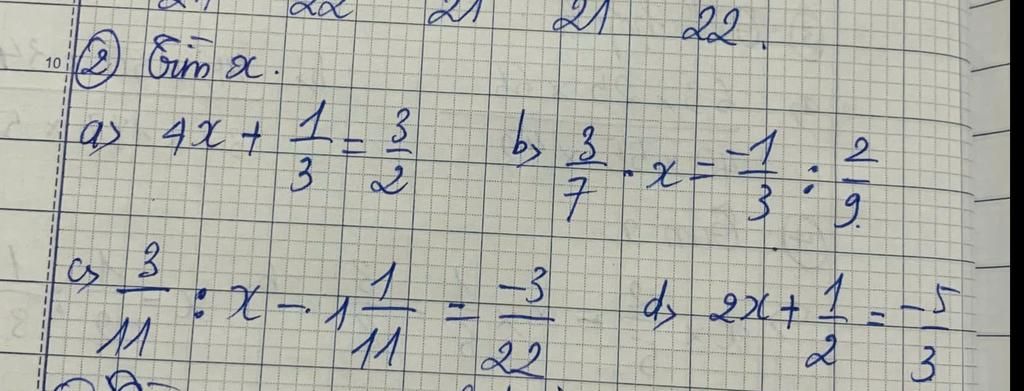 22 21 21 22.
10
② Tìm x.
a> 4x + 1/3 = 3/2 b> 3/7 . x = -1/3 : 2/9
c> 3/11 : x - 1 1/11 = -3/22 d> 2x + 1/2 = -5/3